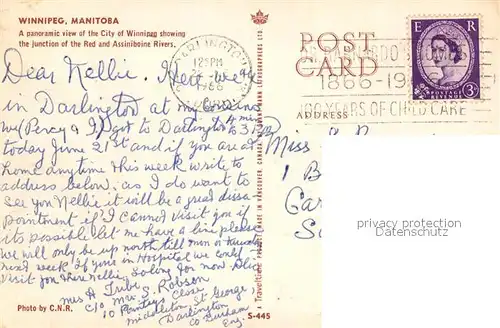 WINNIPEG, MANITOBA
A panoramic view of the City of Winnipeg showing
the junction of the Red and Assiniboine Rivers.
Dear Nellie. Here we are
in Darlington at my cousins
we (Percy & I) got to Darlington 4 mins to 3 P.M
today June 21st and if you are at
home anytime this week write to
address below, as I do want to
see you Nellie it will be a great dissa
pointment if I cannot visit you if
its possible let me have a line please
we will only be up north till mon or
next week if your in Hospital we could
visit you there Nellie. So long for now
Mrs H Tribe
c/o Mrs S. Robson
10 Close
Middleton St George,
Darlington
Co Durham
Eng.
Photo by C.N.R.
S-445
POST
CARD
ADDRESS
DARLINGTON
12 15 PM
1966
1866-19
100 YEARS OF CHILD CARE
E R
POSTAGE REVENUE
3D
Miss
1 B
Ca
S
privacy protection
privacy protection